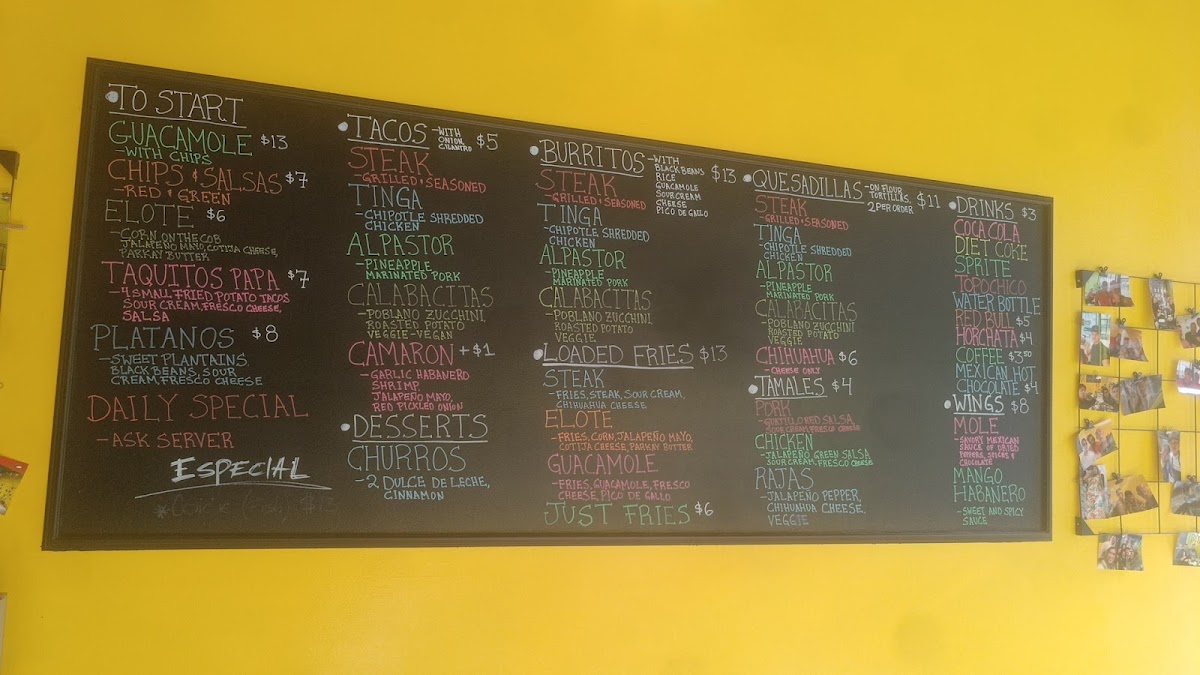 TO START
GUACAMOLE $13
-WITH CHIPS
CHIPS & SALSAS $7
-RED & GREEN
ELOTE $6
-CORN ON THE COB
JALAPEÑO MAYO, COTIJA CHEESE,
PARKAY BUTTER
TAQUITOS PAPA $7
-4 SMALL FRIED POTATO TACOS
SOUR CREAM, FRESCO CHEESE,
SALSA
PLATANOS $8
-SWEET PLANTAINS,
BLACK BEANS, SOUR
CREAM, FRESCO CHEESE
DAILY SPECIAL
-ASK SERVER
ESPECIAL
TACOS -WITH ONION CILANTRO $5
STEAK
-GRILLED & SEASONED
TINGA
-CHIPOTLE SHREDDED
CHICKEN
ALPASTOR
-PINEAPPLE
MARINATED PORK
CALABACITAS
-POBLANO ZUCCHINI,
ROASTED POTATO
VEGGIE-VEGAN
CAMARON +$1
-GARLIC HABANERO
SHRIMP,
JALAPEÑO MAYO,
RED PICKLED ONION
DESSERTS
CHURROS
-2 DULCE DE LECHE,
CINNAMON
BURRITOS -WITH $13
BLACK BEANS
RICE
GUACAMOLE
SOUR CREAM
CHEESE
PICO DE GALLO
STEAK
-GRILLED & SEASONED
TINGA
-CHIPOTLE SHREDDED
CHICKEN
ALPASTOR
-PINEAPPLE
MARINATED PORK
CALABACITAS
-POBLANO ZUCCHINI,
ROASTED POTATO
VEGGIE
LOADED FRIES $13
STEAK
-FRIES, STEAK, SOUR CREAM,
CHIHUAHUA CHEESE
ELOTE
-FRIES, CORN, JALAPEÑO MAYO,
COTIJA CHEESE, PARKAY BUTTER
GUACAMOLE
-FRIES, GUACAMOLE, FRESCO
CHEESE, PICO DE GALLO
JUST FRIES $6
QUESADILLAS -ON FLOUR $11
TORTILLAS,
2 PER ORDER
STEAK
-GRILLED & SEASONED
TINGA
-CHIPOTLE SHREDDED
CHICKEN
ALPASTOR
-PINEAPPLE
MARINATED PORK
CALABACITAS
-POBLANO ZUCCHINI,
ROASTED POTATO
VEGGIE
CHIHUAHUA $6
-CHEESE ONLY
TAMALES $4
PORK
-GUAJILLO RED SALSA,
SOUR CREAM, FRESCO CHEESE
CHICKEN
-JALAPEÑO GREEN SALSA
SOUR CREAM, FRESCO CHEESE
RAJAS
-JALAPEÑO PEPPER,
CHIHUAHUA CHEESE,
VEGGIE
DRINKS $3
COCA COLA
DIET COKE
SPRITE
TOPOCHICO
WATER BOTTLE
RED BULL $5
HORCHATA $4
COFFEE $3.50
MEXICAN HOT
CHOCOLATE $4
WINGS $8
MOLE
-SAVORY MEXICAN
SAUCE OF DRIED
PEPPERS, SPICES &
CHOCOLATE
MANGO
HABANERO
-SWEET AND SPICY
SAUCE